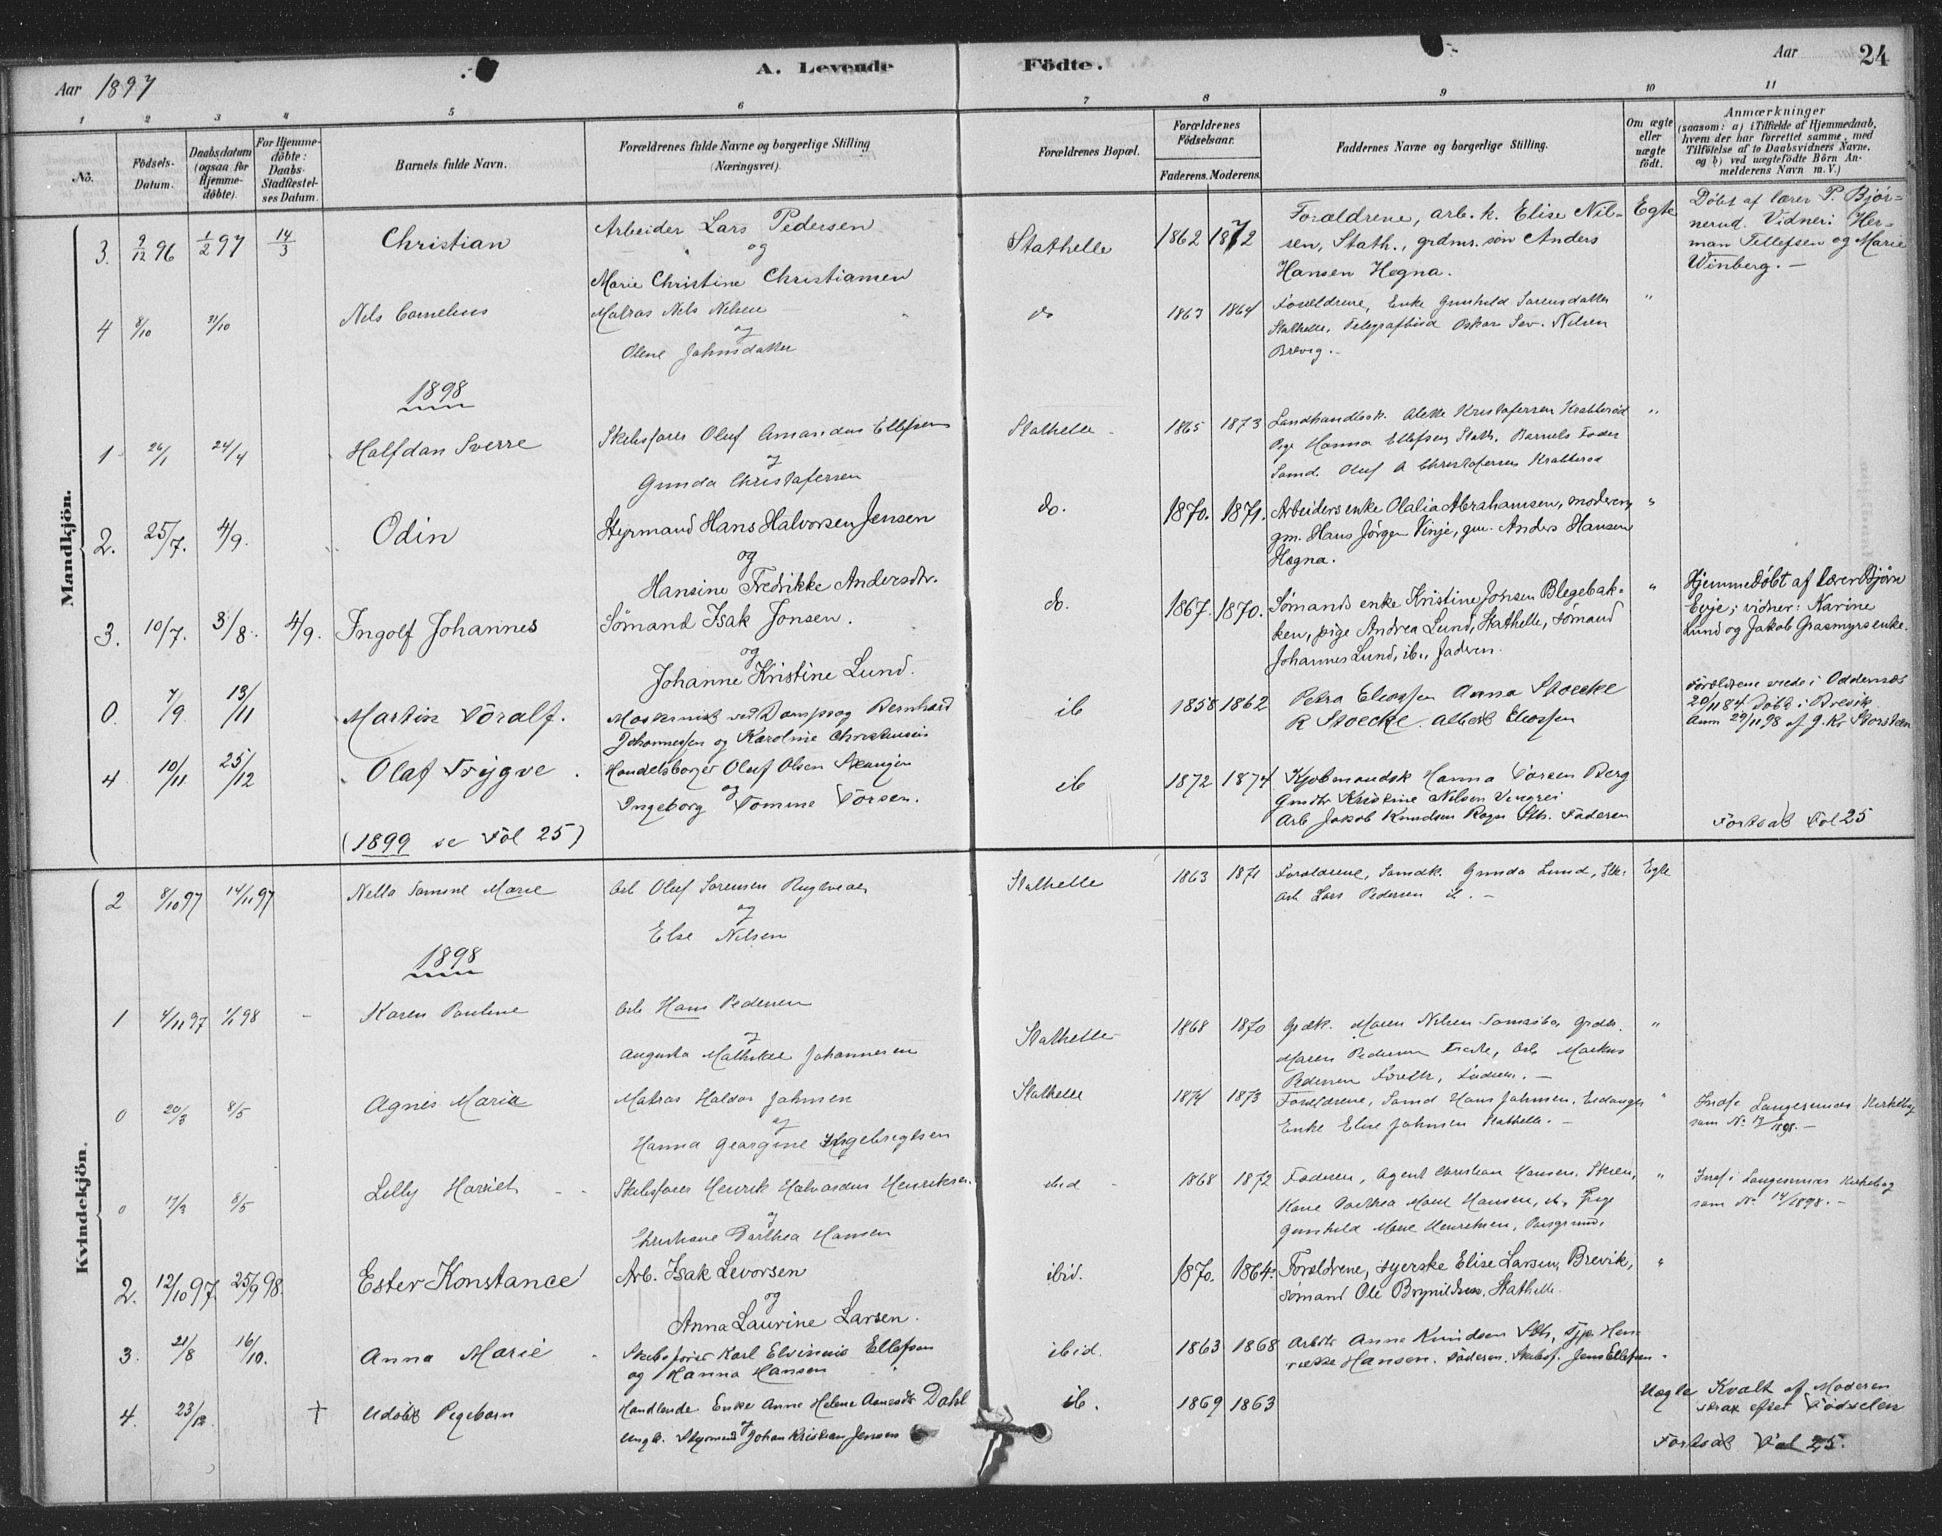 Aar 1897
A. Levende Födte.
Aar 24
1 2 3 4 5 6 7 8 9 10 11
No.
Födsels-Datum.
Daabsdatum (ogsaa for Hjemme-döbte).
For Hjemme-döbte: Daabs-Stadfæstel-ses Datum.
Barnets fulde Navn.
Forældrenes fulde Navne og borgerlige Stilling (Næringsvei).
Forældrenes Bopæl.
Forældrenes Födselsaar.
Faderens. Moderens.
Faddernes Navne og borgerlige Stilling.
Om ægte eller uægte födt.
Anmærkninger
(saasom: a) i Tilfælde af Hjemmedaab, hvem der har forrettet samme, med Tilföielse af to Daabsvidners Navne, og b) ved uægtefödte Börn An-melderens Navn m. V.)
Mandkjön.
3. 9/12 96 1/2 97 14/3 Christian
Arbeider Lars Pedersen
og
Marie Christine Christiansen
Stathelle 1862 1872
Forældrene, arb. k. Elise Nil-
sen, Stath., grdmr. søn Anders
Hansen Hegna.
Egte
Döbt af lærer P. Bjør-
nerud. Vidner: Her-
man Tellefsen og Marie
Winberg. —
4 8/10 31/10 Nels Cornelius
Matros Nels Nelsen
og
Olene Johnsdatter
do 1863 1864
Forældrene, Enke Gunhild Sorensdatter
Stathelle, Telegrafbud Oskar Sev. Nilsen
Brevig. —
"
1898
1 26/1 24/4 Halfdan Sverre
Skibsfører Oluf Amandus Ellefsen
og
Gunda Christofersen
Stathelle 1865 1873
Landhandlersk. Kristofersen Krabberød
Pige Hanna Ellefsen Stath. Barnets Fader
Sømd. Oluf A Christofersen Krabberød
"
2. 25/7. 4/9. Odin
Styrmand Hans Halvorsen Jensen
og
Hansine Fredrikke Andersdtr.
do. 1870. 1871.
Arbeiders enke Olalia Abrahamsen, moderen,
gm. Hans Jörgen Vinje, gm. Anders Hansen
Hegna.
"
3. 10/7. 3/8. 4/9. Ingolf Johannes
Sömand Isak Jonsen.
og
Johanne Kristine Lund.
do. 1867. 1870.
Sömands enke Kristine Jonsen Blegebak-
ken, pige Andrea Lund, Stathelle, sömand
Johannes Lund, ib., faderen.
"
Hjemmedöbt af lærer Björn
Evje; vidner: Karine
Lund og Jakob Grasmyrs enke.
0. 7/9 13/11 Martin Toralf.
Maskinist ved Dampsag Bernhard
Johannessen og Karoline Christensen
ib 1858 1862
Petra Eliassen Anna Stoecke
R Stoecke. Albert Eliassen
Forældrene viede i Oddernes
20/11 84 Döbt i Brevik.
Anm 29/11 98 af
4 10/11 25/12 Olaf Trygve.
Handelsborger Oluf Olsen Skaugen
og
Ingeborg Tomine Torsen.
ib 1872 1874
Kjobmandsk Hanna Torsen Berg
Gmdtr Kristine Nilsen
Arb Jakob Knudsen Sth. Faderen
Fortsat Fol 25
(1899 se Fol 25)
Kvindekjön.
2 8/10 97 14/11 97 Nella Tomine Marie
Arb Oluf Sorensen
og
Else Nilsen
Stathelle 1863 1871
Forældrene, Sømdk. Gunda Lund, Sth.
Arb Lars Pedersen ib. —
Egte
1898
1 4/11 97 1/1 98 Karen Pauline
Arb Hans Pedersen
og
Augusta Mathilde Johannesen
Stathelle 1868 1870
Grdk. Maren Nilsen
Maren Pedersen Arb Markus
Pedersen Faderen. —
"
0 20/3 8/5 Agnes Marie
Matros Haldor Johnsen
og
Hanna Georgine Ingebrigtsen
Stathelle 1874 1873
Forældrene, Sømd Hans Johnsen, Eidanger
Enke Elise Johnsen Stathelle. —
"
Indf. Langesunds Kirkebog
som No
0 17/3 8/5 Lilly Harriet
Skibsfører Henrik Halvordus Henriksen.
og
Christiane Dorthea Hansen
ibid 1868 1872
Faderen, Agent Christian Hansen, Skien,
Kone Dorthea Marie Hansen, ib, Pige
Gunhild Marie Henriksen, Porsgrund.
"
Indf i Langesunds Kirkebog
som No 14/1898. —
2. 12/10 97. 25/9 98. Ester Konstance
Arb. Isak Levorsen
og
Anna Laurine Larsen.
ibid. 1870. 1864.
Forældrene, syerske Elise Larsen, Brevik,
Sömand Ole Brynildsen, Stathelle.
"
3. 21/8 16/10. Anna Marie
Skibsfører Karl Elvinius Ellefsen
og Hanna Hansen
ibid. 1863 1868
Arbdtr Anne Knudsen Sth, Tjp. Hen
rikke Hansen. Faderen. Skibsf. Jens Ellefsen.
4. 23/12 † Udöbt Pigebarn
Handlende Enke Anne Helene Dahl
og
Ungk. Styrmand Johan Kristian Jensen
ib. 1869 1863
Uægte
Kvalt af Moderen
strax efter Födselen
Fortsat Fol 25.